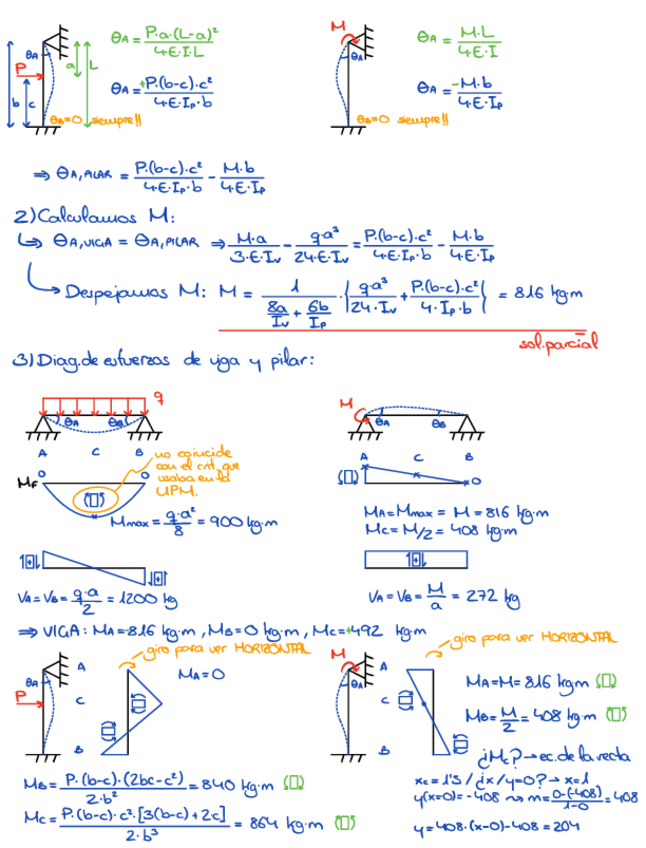 θA = P·a·(L-a)² / 4·E·I·L
θA = +P·(b-c)·c² / 4·E·Ip·b
θA
P
a
L
b
c
θB=0 siempre!!
M
θA
θA = M·L / 4·E·I
θA = -M·b / 4·E·Ip
θB=0 siempre!!
⇒ θA,PILAR = P·(b-c)·c² / 4·E·Ip·b - M·b / 4·E·Ip
2) Calculamos M:
↳ θA,VIGA = θA,PILAR ⇒ M·a / 3·E·Iv - q·a³ / 24·E·Iv = P·(b-c)·c² / 4·E·Ip·b - M·b / 4·E·Ip
↳ Despejamos M: M = 1 / (8a/Iv + 6b/Ip) · { q·a³ / 24·Iv + P·(b-c)·c² / 4·Ip·b } = 816 kg·m
sol. parcial
3) Diag. de esfuerzos de viga y pilar:
q
θA
θB
A C B
no coincide
con el crit. que
usaba en la
UPM.
MF
0
0
Mmax = q·a² / 8 = 900 kg·m
VA = VB = q·a / 2 = 1200 kg
M
θA
θB
A C B
0
MA = Mmax = M = 816 kg·m
MC = M/2 = 408 kg·m
VA = VB = M / a = 272 kg
⇒ VIGA: MA = -816 kg·m, MB = 0 kg·m, MC = +492 kg·m
giro para ver HORIZONTAL
θA
P
A
C
B
MA = 0
MB = P·(b-c)·(2bc-c²) / 2·b² = 840 kg·m
MC = P·(b-c)·c²·[3(b-c)+2c] / 2·b³ = 864 kg·m
giro para ver HORIZONTAL
M
θA
A
C
B
MA = M = 816 kg·m
MB = M / 2 = 408 kg·m
¿MC? → ec. de la recta
xC = 1'5 / ¿x/y=0? → x=1
y(x=0) = -408 ⇝ m = 0-(-408) / 1-0 = 408
y = 408·(x-0)-408 = 204